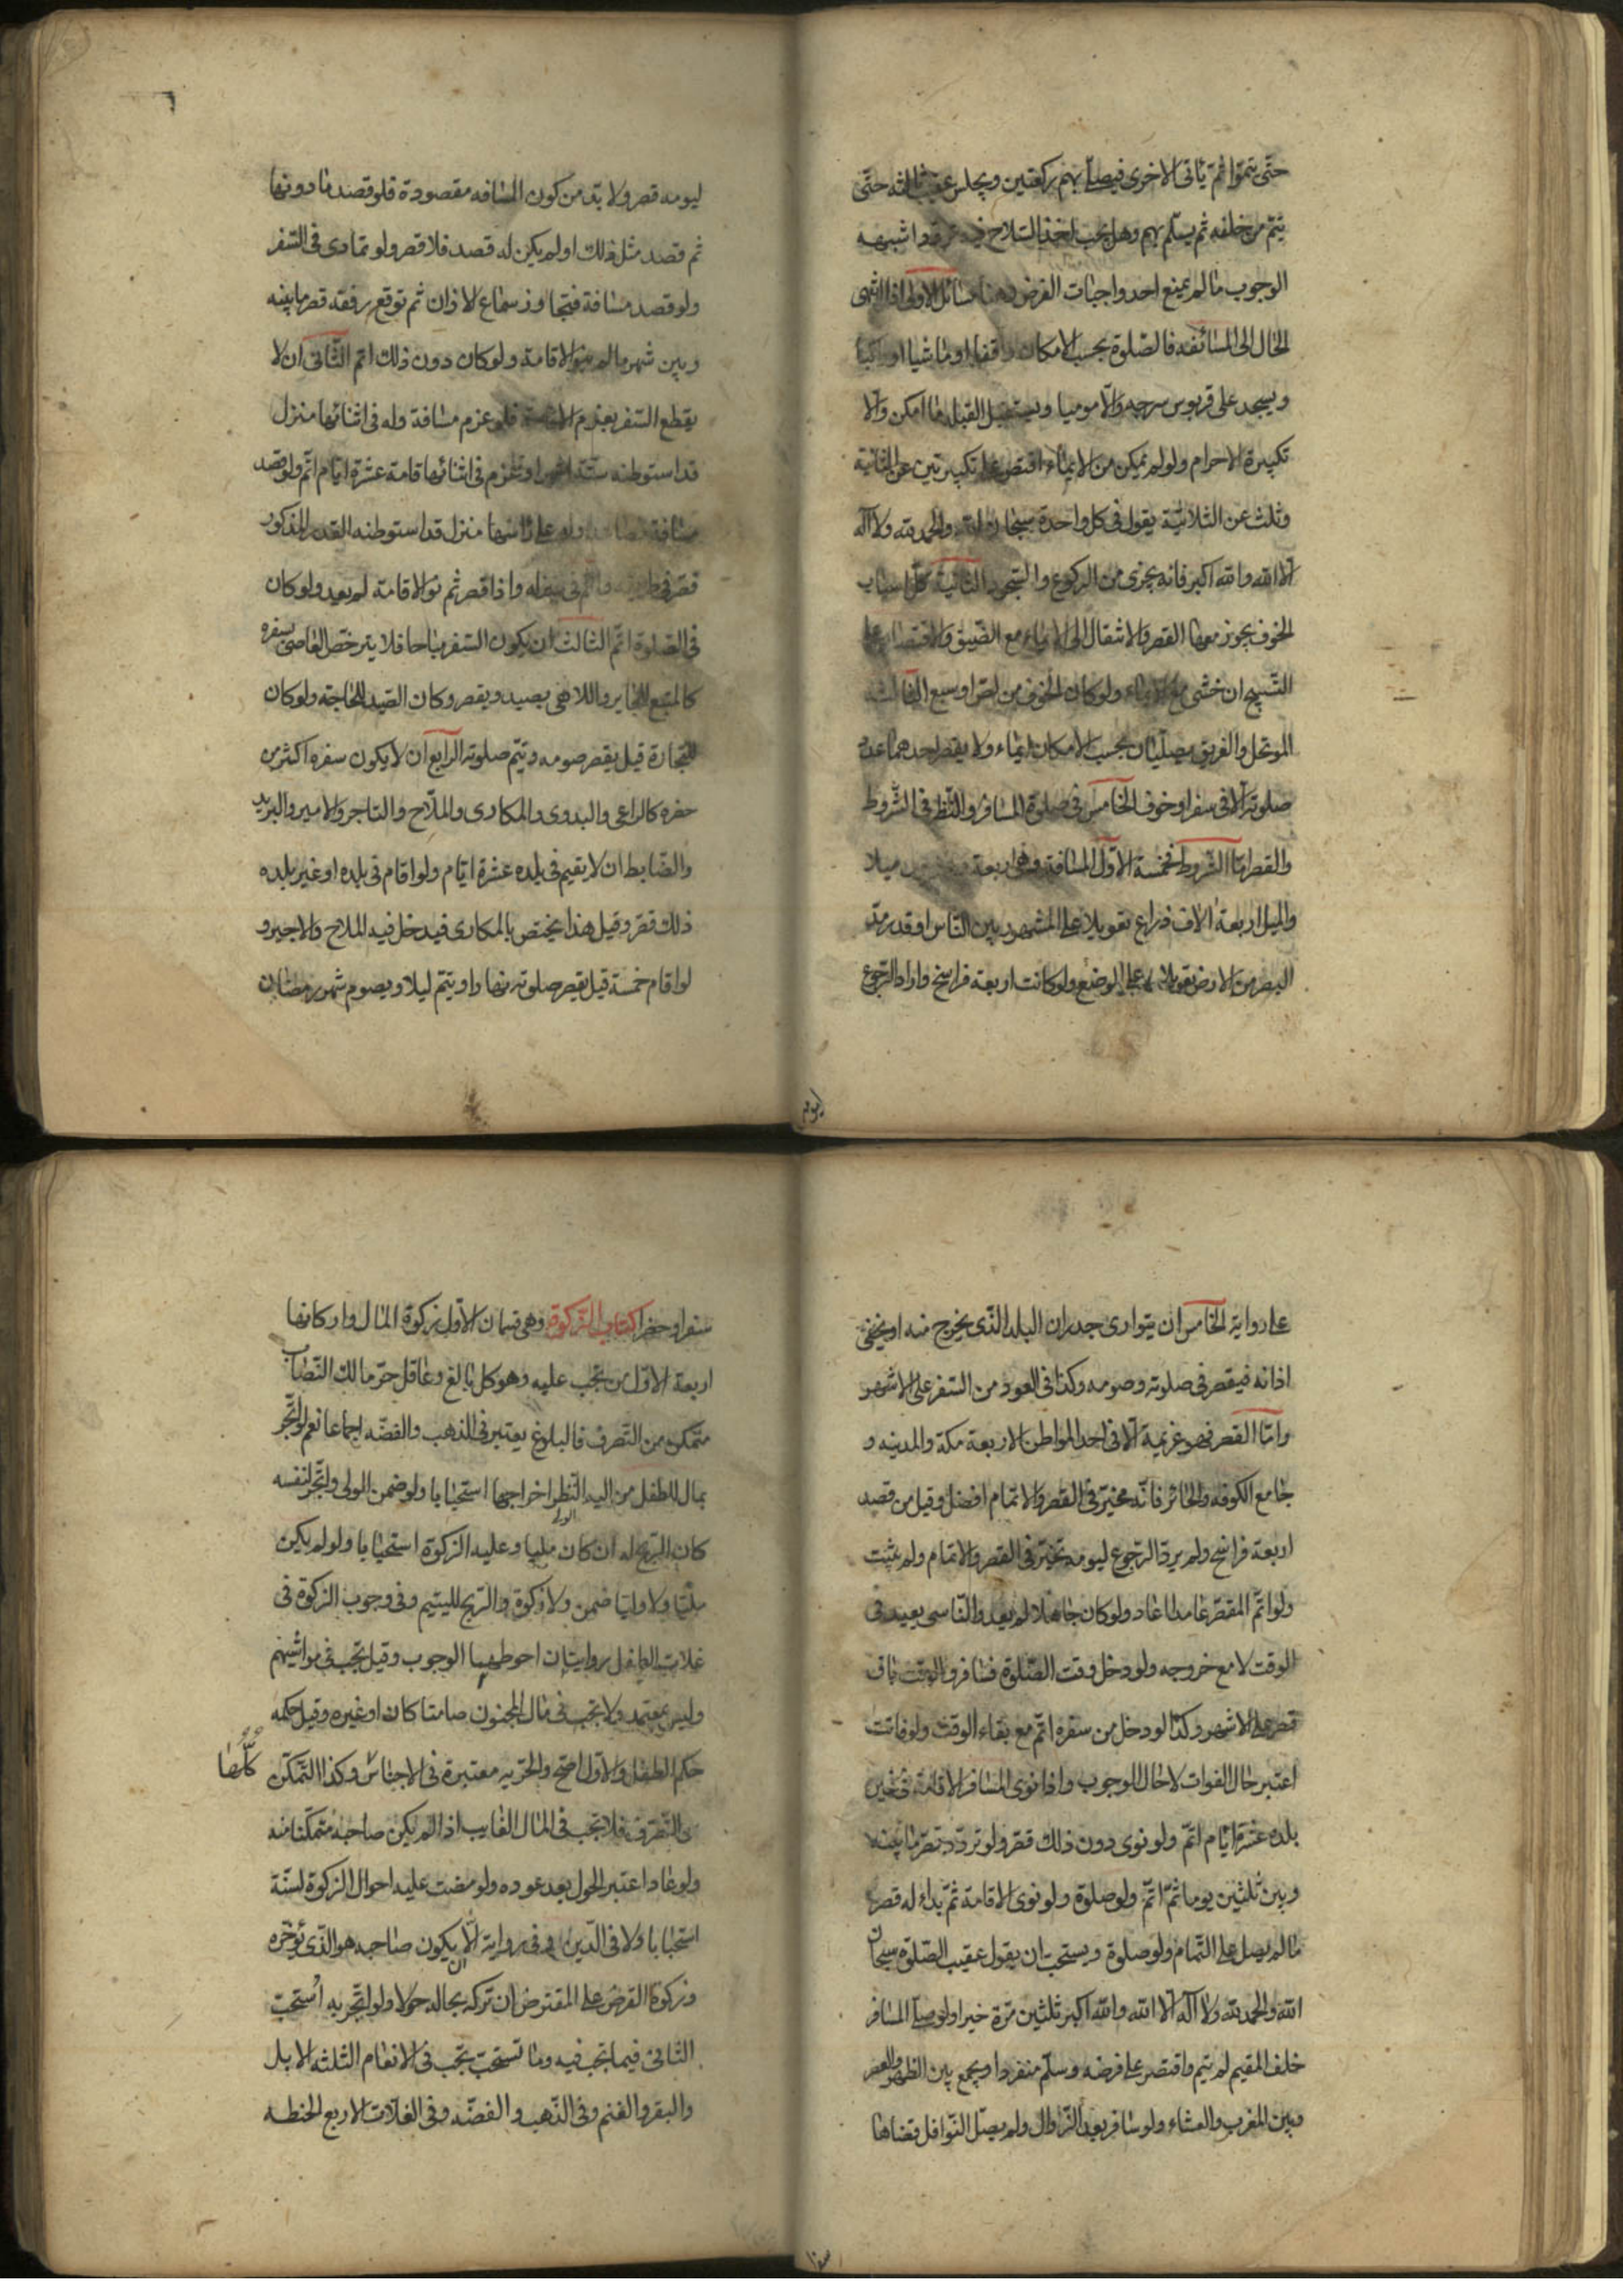 حتّى يتمّوا ثم يأتى الاخرى فيصلّى بهم ركعتين ويجلس عقيب ثالثه حتّى
يتم من خلفه ثم يسلّم بهم وهل يجب اخذ السّلاح فيه تردد اشبهه
الوجوب ما لم يمنع احد واجبات الفرض وهنا مسائل الاولى اذا انتهى
الحال الى المسائفه فالصّلوة بحسب الامكان واقفا او ماشيا او راكبا
ويسجد على قربوس سرجه والّا موميا ويستقبل القبله ما امكن والّا
تكبيرة الاحرام ولو لم يمكن من الايماء اقتصر على تكبيرتين عن الثنائية
وثلث عن الثلاثيّة يقول فى كل واحدة سبحان الله والحمد لله ولا اله
الّا الله والله اكبر فانه يجزى من الركوع والسّجود الثانية كلّ اسباب
الخوف يجوز معها القصر والانتقال الى الايماء مع الضّيق والاقتصار على
التّسبيح ان خشى مع الايماء ولو كان الخوف من لصّ او سبع الثالثة
الموتحل والغريق يصلّيان بحسب الامكان ايماء ولا يقصر احدهما عدد
صلوته الّا فى سفر او خوف الخامس فى صلوة المسافر والنّظر فى الشّروط
والقصر امّا الشّروط فخمسة الاوّل المسافة وهى اربعة وعشرين ميلا
والميل اربعة الاف ذراع تعويلا على المشهور بين النّاس او قدر مدّ
البصر من الارض تعويلا على الوضع ولو كانت اربعة فراسخ واراد الرّجوع
ليومه
ليومه قصر ولا بدّ من كون المسافه مقصودة فلو قصد ما دونها
ثم قصد مثل ذلك او لم يكن له قصد فلا قصر ولو تمادى فى السّفر
ولو قصد مسافة فتجاوز سماع الاذان ثم توقع رفقه قصر ما بينه
وبين شهر ما لم ينو الاقامة ولو كان دون ذلك اتم الثّانى ان لا
يقطع السّفر بعزم الاقامة فلو عزم مسافة وله فى اثنائها منزل
قد استوطنه ستّة اشهر او عزم فى اثنائها اقامة عشرة ايّام اتّم ولو قصد
مسافة فصاعدا وله على راسها منزل قد استوطنه القدر المذكور
قصّر فى طريقه واتم فى منزله واذا قصر ثم نوى الاقامة لم يعد ولو كان
فى الصّلوة اتّم الثالث ان يكون السّفر مباحا فلا يترخّص العاصى بسفره
كالمتبع للجاير واللاهى بصيد ويقصر وكان الصّيد للحاجة ولو كان
للتجارة قيل يقصر صومه ويتم صلوته الرابع ان لا يكون سفره اكثر من
حضره كالراعى والبدوى والمكارى والملّاح والتاجر والامير والبريد
والضّابط ان لا يقيم فى بلده عشرة ايّام ولو اقام فى بلده او غير بلده
ذلك قصّر وقيل هذا يختص بالمكارى فيدخل فيه الملاح والاجير و
لو اقام خمسة قيل يقصر صلوته نهارا ويتم ليلا ويصوم شهر رمضان
على رواية الخامس ان يتوارى جدران البلد الّذى يخرج منه او يخفى
اذانه فيقصر فى صلوته وصومه وكذا فى العود من السّفر على الاشهر
وامّا القصر فهو عزيمة الّا فى احد المواطن الاربعة مكة والمدينه و
جامع الكوفه والحائر فانّه مخيّر فى القصر والاتمام افضل وقيل من قصد
اربعة فراسخ ولم يرد الرّجوع ليومه تخيّر فى القصر والاتمام ولم يثبت
ولو اتّم المقصّر عامدا اعاد ولو كان جاهلا لم يعد والنّاسى يعيد فى
الوقت لا مع خروجه ولو دخل وقت الصّلوة فسافر والوقت باق
قصر على الاشهر وكذا لو دخل من سفره اتّم مع بقاء الوقت ولو فاتت
اعتبر حال الفوات لا حال الوجوب واذا نوى المسافر الاقامة فى غير
بلده عشرة ايّام اتّم ولو نوى دون ذلك قصّر ولو تردّد قصّر ما بينه
وبين ثلثين يوما ثمّ اتّم ولو صلوة ولو نوى الاقامة ثمّ بداء له قصر
ما لم يصل على التّمام ولو صلوة ويستحب ان يقول عقيب الصّلوة سبحان
الله والحمد لله ولا اله الّا الله والله اكبر ثلثين مرّة خيرا ولو صلّى المسافر
خلف المقيم لم يتم واقتصر على فرضه وسلّم منفردا ويجمع بين الظهر والعصر
وبين المغرب والعشاء ولو سافر بعد الزّوال ولم يصلّ النّوافل قضاها
سفرا
سفرا وحضرا كتاب الزّكوة وهى قسمان الاوّل زكوة المال واركانها
اربعة الاوّل من تجب عليه وهو كل بالغ وعاقل حرّ مالك النّصاب
متمكن من التّصرف فالبلوغ يعتبر فى الذهب والفضّه اجماعا نعم لو اتّجر
بمال الطفل من اليه النّظر اخراجها استحبابا ولو ضمن الولى واتّجر لنفسه
كان الربح له ان كان الولى مليا وعليه الزكوة استحبابا ولو لم يكن
مليّا ولا وليّا ضمن ولا زكوة والرّبح لليتيم وفى وجوب الزكوة فى
غلات الطفل روايتان احوطهما الوجوب وقيل تجب فى مواشيهم
وليس بمعتمد ولا تجب فى مال المجنون صامتا كان او غيره وقيل حكمه
حكم الطفل والاوّل اصّح والحرّيه معتبرة فى الاجناس كلّها وكذا التّمكن
من التّصرف فلا تجب فى المال الغايب اذا لم يكن صاحبه متمكّنا منه
ولو عاد اعتبر الحول بعد عوده ولو مضت عليه احوال الزكوة لسنّة
استحبابا ولا فى الدّين وفى رواية الّا ان يكون صاحبه هو الّذى يؤخّره
وزكوة القرض على المقترض ان تركه بحاله حولا ولو اتّجر به استحبّ
الثانى فيما تجب فيه وما تستحبّ تجب فى الانعام الثلثه الابل
والبقر والغنم وفى الذّهب والفضّه وفى الغلّات الاربع الحنطه